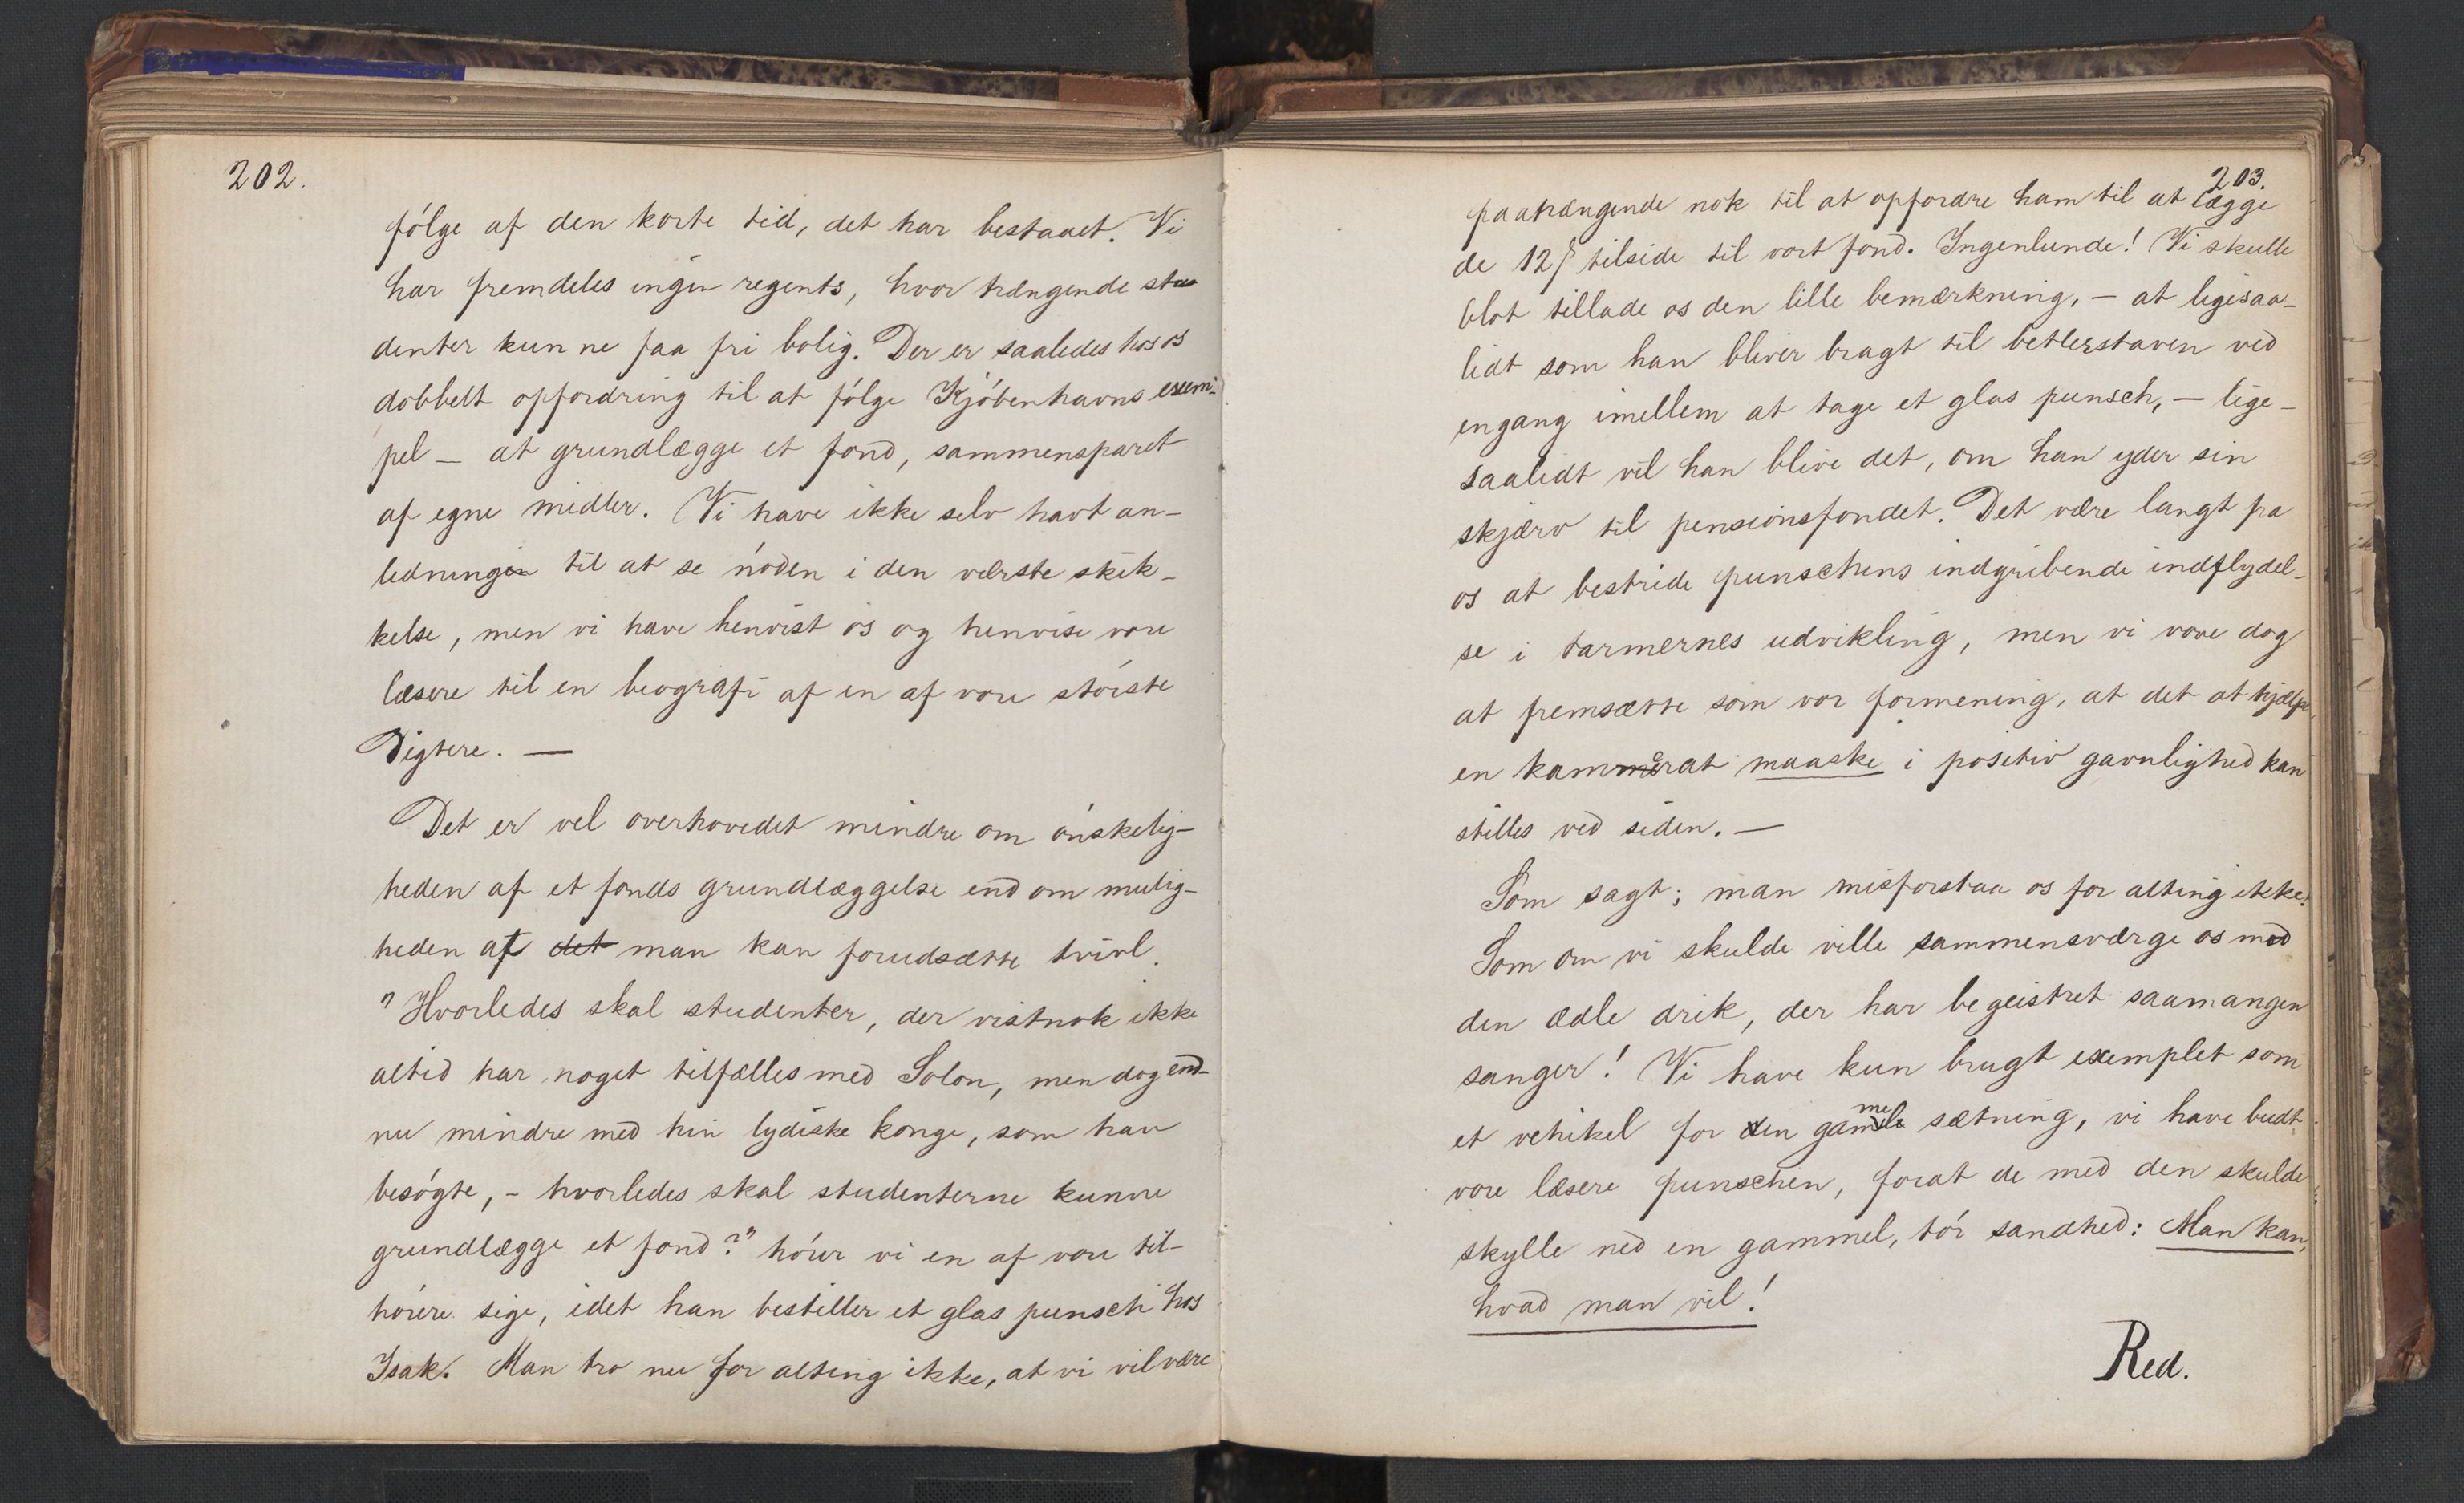 202.
fólge af den korte tid, det har bestaaet. Vi
har fremdeles ingen regents, hvor trængende stu
denter kunne faa fri bolig. Der er saaledes hos os
dobbelt opfordring til at fólge Kjóbenhavns exem-
pel — at grundlægge et fond, sammensparet
af egne midler. Vi have ikke selv havt an-
ledningen til at se nóden i den værste skik-
kelse, men vi have henvist os og henvise vore
læsere til en biografi af en af vore stórste
Digtere. —
Det er vel overhovedet mindre om ónskelig-
heden af et fonds grundlæggelse end om mulig-
heden af det man kan forudsætte tvivl.
"Hvorledes skal studenter, der vistnok ikke
altid har noget tilfælles med Solon, men dog end-
nu mindre med hin lydiske konge, som han
besógte, - hvorledes skal studenterne kunne
grundlægge et fond?" hórer vi en af vore til-
hórere sige, idet han bestiller et glas punsch hos
Isak. Man tro nu for alting ikke, at vi vil være
203.
paatrængende nok til at opfordre ham til at lægge
de 12 β tilside til vort fond. Ingenlunde! Vi skulle
blot tillade os den lille bemærkning, — at ligesaa-
lidt som han bliver bragt til betlerstaven ved
engang imellem at tage et glas punsch, — lige-
saalidt vil han blive det, om han yder sin
skjærv til pensionsfondet. Det være langt fra
os at bestride punschens indgribende indflydel-
se i tarmernes udvikling, men vi vove dog
at fremsætte som vor formening, at det at hjælpe
en kammerat maaske i positiv gavnlighed kan
stilles ved siden. —
Som sagt; man misforstaa os for alting ikke!
Som om vi skulde ville sammensværge os mod
den ædle drik, der har begeistret saamangen
sanger! Vi have kun brugt exemplet som
et vehikel for den gamle sætning, vi have budt
vore læsere punschen, forat de med den skulde
skylle ned en gammel, tór sandhed: Man kan,
hvad man vil!
Red.